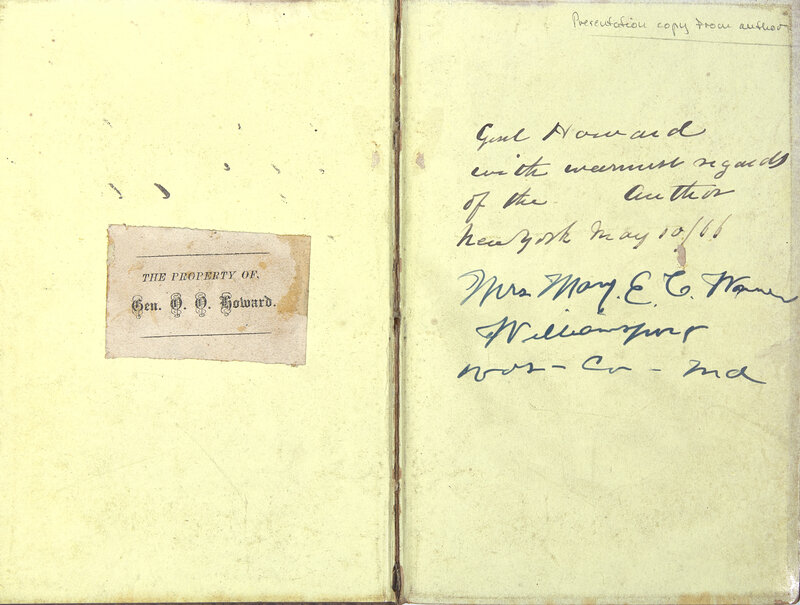 THE PROPERTY OF.
Gen. O. O. Howard.
Presentation copy from author
Genl Howard
with warmest regards
of the Author
New York May 10/66
Mrs Mary. E. C.
Williamsburg
Co - Md